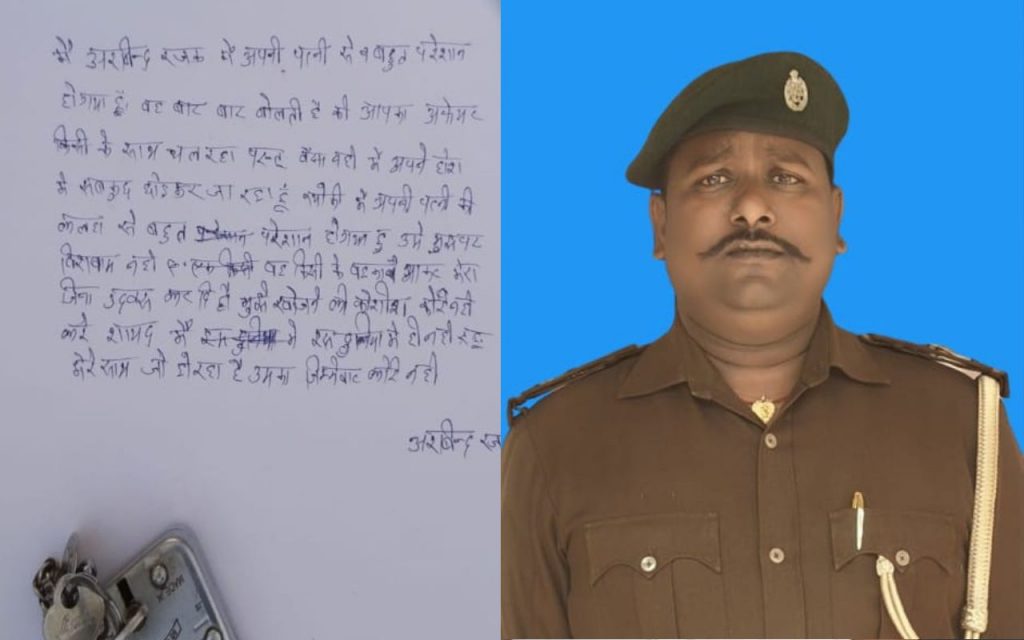 मैं अरबिन्द रजक मैं अपनी पत्नी से बहुत परेशान
होगया हूँ। वह बार बार बोलती है की आपका अफेयर
किसी के साथ चल रहा परन्तु मैं अपने होश
मे सबकुछ छोड़कर जा रहा हूँ क्योकी मैं अपनी पत्नी की
कलह से बहुत परेशान होगया हु उसे मुझपर
विशवास नही वह किसी के बहकावे आकर मेरा
जिना कर दि है मुझे खोजने की कोशीश कोई नही
करे शायद मैं इस दुनिया मे ही नही रहू
मेरे साथ जो हो रहा है उसका जिम्मेवार कोई नही
अरबिन्द रज